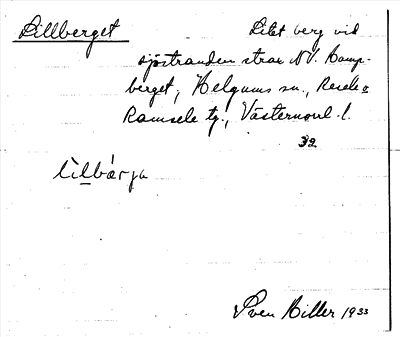 Lillberget
Litet berg vid
sjöstranden strax N.V. Kamp-
berget, Helgums sn., Resele o
Ramsele tg., Västernorrl. l.
32
lìlbárja
Sven Hiller 1933